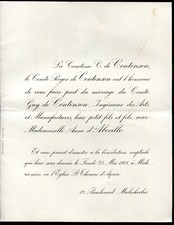 La Comtesse C. de Coutenson,
le Comte Roger de Coutenson ont l'honneur
de vous faire part du mariage du Comte
Guy de Coutenson Ingénieur des Arts
et Manufactures, leur petit fils et fils, avec
Mademoiselle Anne d'Aboville
Et vous prient d'assister à la bénédiction nuptiale
qui leur sera donnée le Lundi 25 Mai 1908, à Midi
très précis en l'Eglise St Thomas d'Aquin
Boulevard Malesherbes